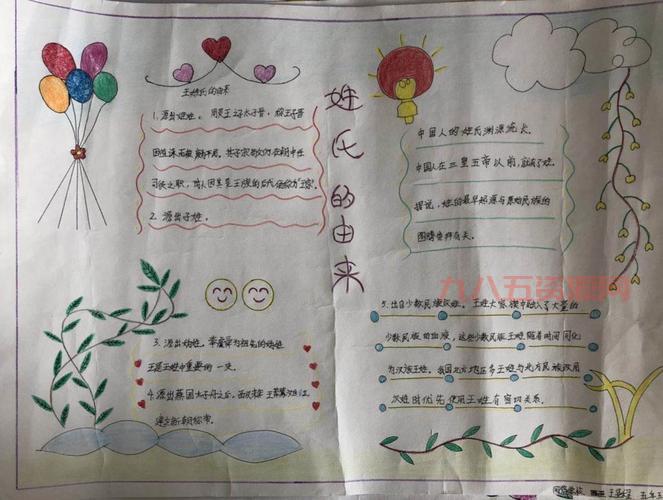 姓氏的由来
王姓氏的由来
1. 源出姬姓。周灵王子太子晋，
因直谏而被废为庶民。其子宗敬仍在朝中任
司徒之职，时人因其是王族的后代便称为"王家"。
2. 源出子姓。
中国人的姓氏渊源流长。
中国人在三皇五帝以前，就有了姓。
据说，姓的最早起源与原始民族的
图腾崇拜有关。
3. 源出妫姓。
王是王姓中重要的一支。
4. 源出燕国太子丹之后。
5. 出自少数民族改姓。王姓大家族中融入了大量的
少数民族的血液，这些少数民族王姓随着时间同化
为汉族王姓。我国北方地区多王姓与北方民族改用
汉姓时优先使用王姓有密切关系。
九八五资源网